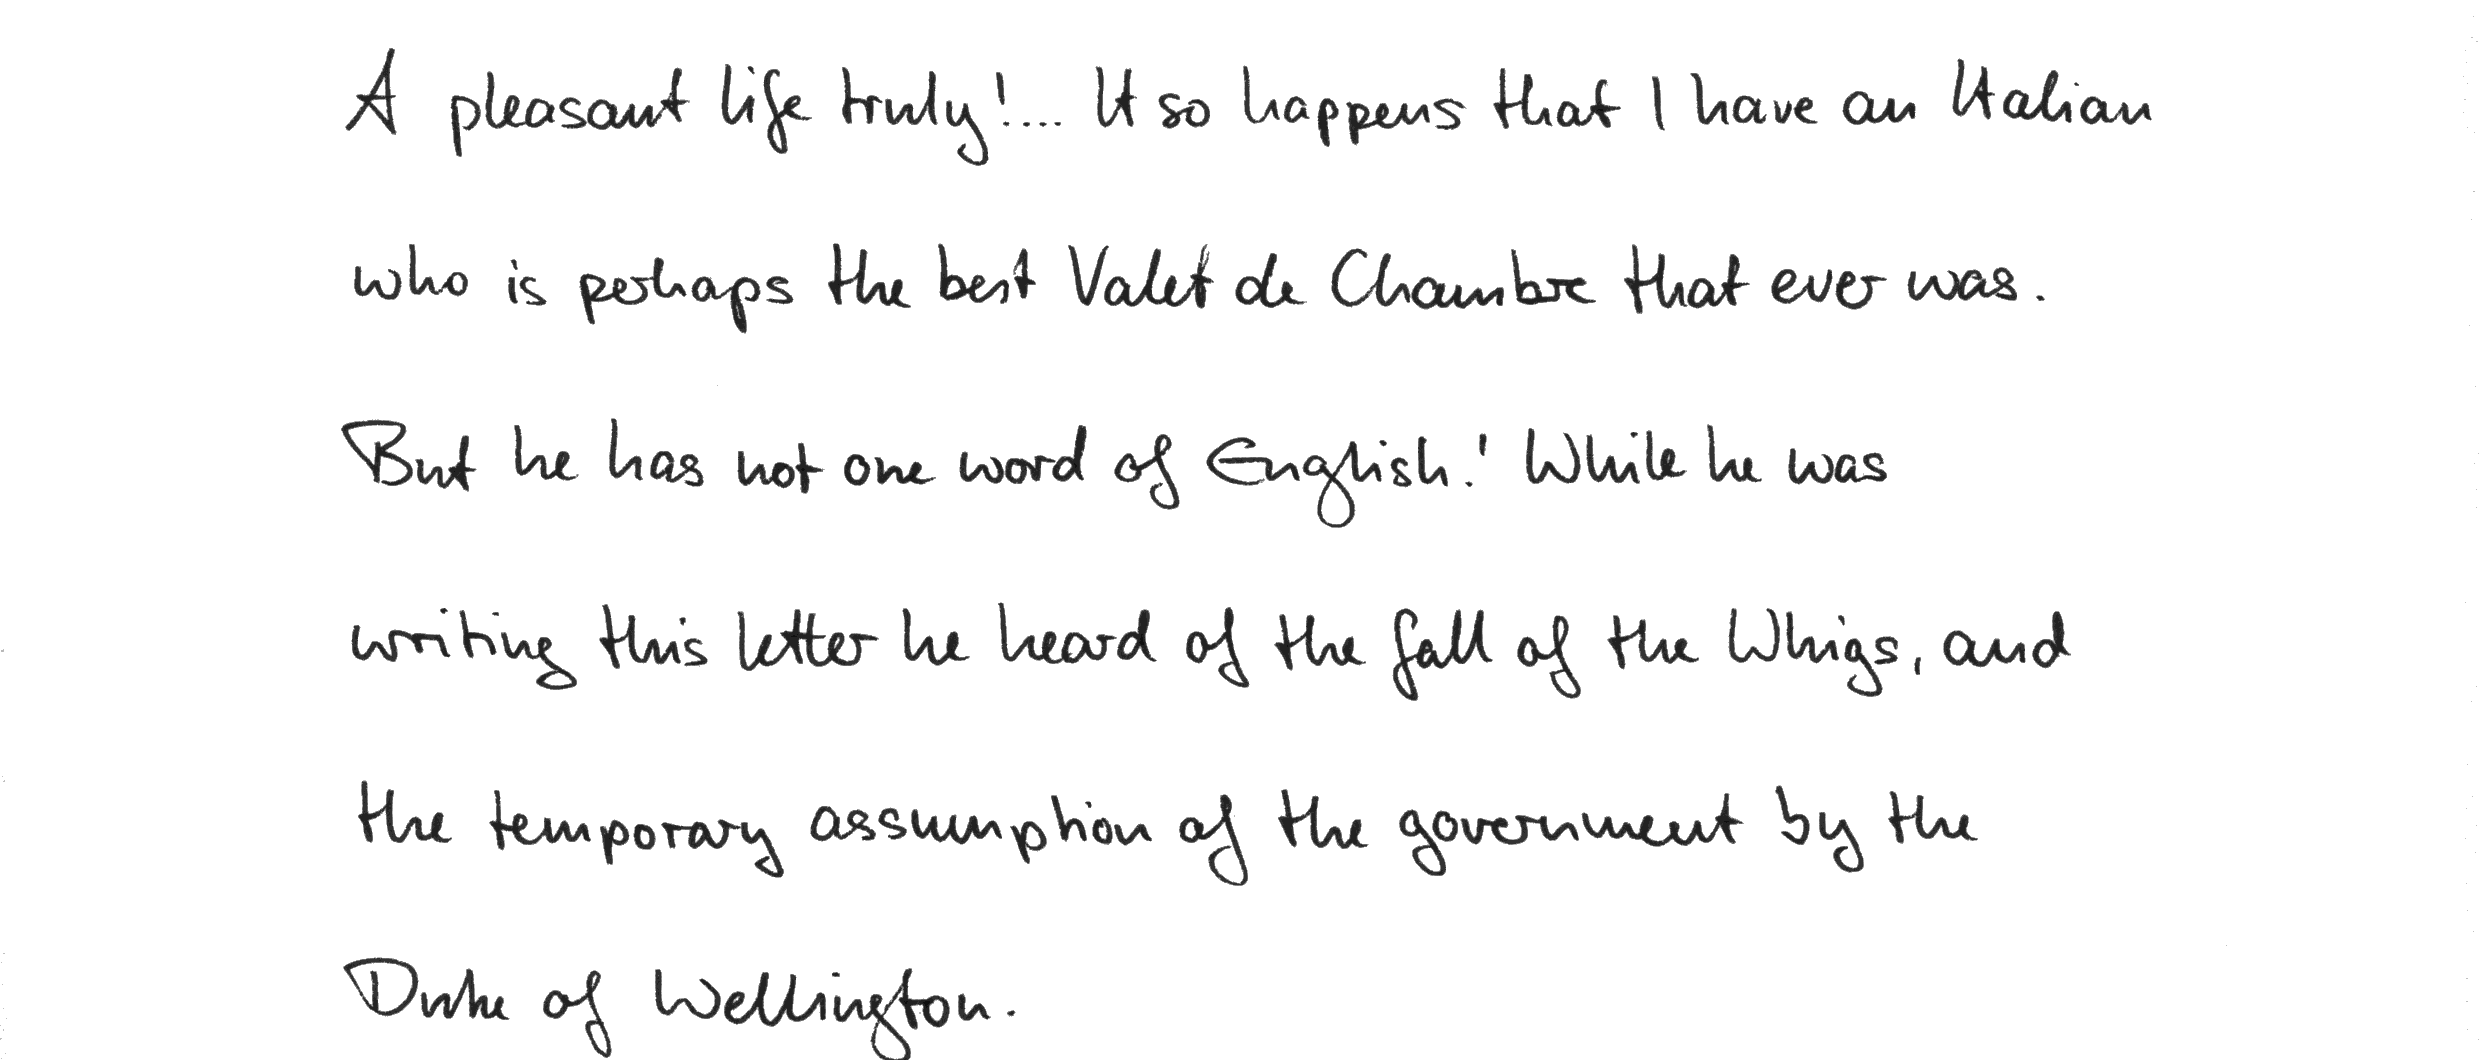 A pleasant life truly!.... It so happens that I have an Italian
who is perhaps the best Valet de Chambre that ever was.
But he has not one word of English! While he was
writing this letter he heard of the fall of the Whigs, and
the temporary assumption of the government by the
Duke of Wellington.